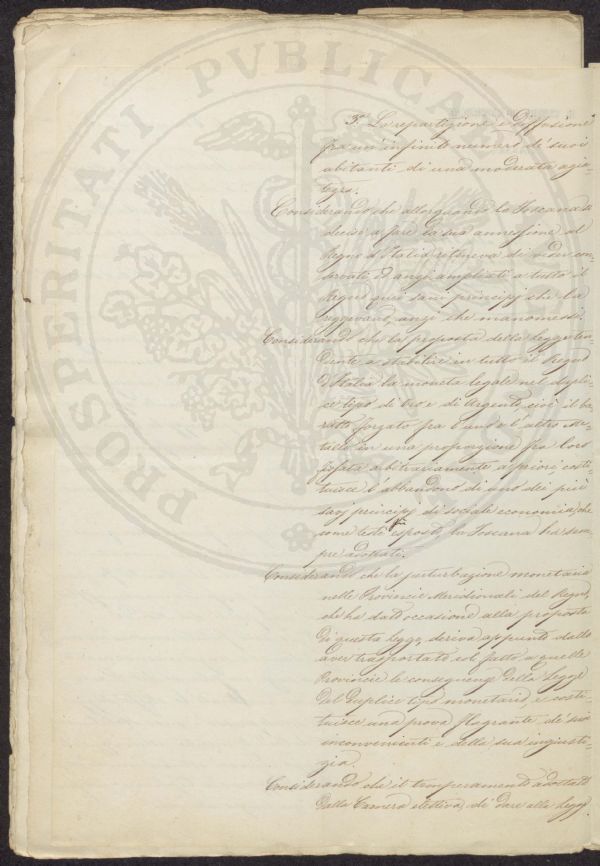 3º. La repartizione e diffusione
fra un'infinito numero di suoi
abitanti di una moderata agia-
tezza.
Considerando che allorquando la Toscana si
decise a fare la sua annessione al
Regno d'Italia riteneva di veder con-
servati ed anzi ampliati a tutto il
Regno quei sani principj che la
reggevano, anzi che manomessi.
Considerando che la proposta della legge ten-
dente a stabilire in tutto il Regno
d'Italia la moneta legale nel dupli-
ce tipo di Oro e di Argento, cioè il ba-
ratto forzato fra l'uno e l'altro me-
tallo in una proporzione fra loro
fissata arbitrariamente a priori costi-
tuisce l'abbandono di uno dei più
savj principj di sociale economia, che
come testè esposti, la Toscana ha sem-
pre adottati.
Considerando che la perturbazione monetaria
nelle Provincie Meridionali del Regno,
che ha dato occasione alla proposta
di questa legge, deriva appunto dallo
aver trasportato col fatto a quelle
Provincie le conseguenze della Legge
del duplice tipo monetario, e costi-
tuisce una prova flagrante de' suoi
inconvenienti e della sua ingiusti-
zia.
Considerando che il temperamento adottato
dalla Camera elettiva, di dare alla Legge
PROSPERITATI PVBLICAE